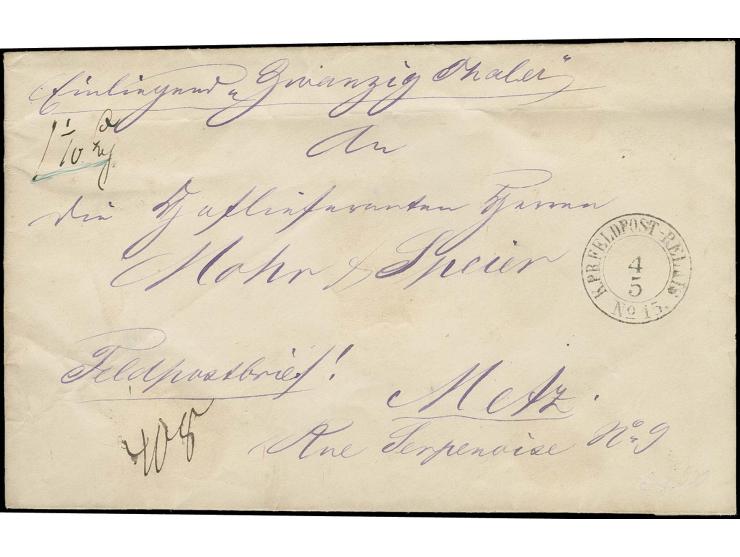 Einliegend „Zwanzig Thaler"
An
die Hoflieferanten Herren
Mohr & Speier
K.PR.FELDPOST-RELAIS
4
5
No 15.
Feldpostbrief!
Metz.
Rue Serpenoise No 9
408